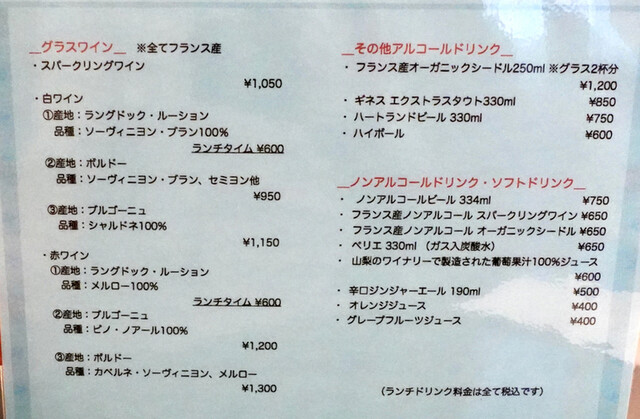 ＿グラスワイン＿ ※全てフランス産
・スパークリングワイン
¥1,050
・白ワイン
①産地：ラングドック・ルーション
品種：ソーヴィニヨン・ブラン100%
ランチタイム ¥600
②産地：ボルドー
品種：ソーヴィニヨン・ブラン、セミヨン他
¥950
③産地：ブルゴーニュ
品種：シャルドネ100%
¥1,150
・赤ワイン
①産地：ラングドック・ルーション
品種：メルロー100%
ランチタイム ¥600
②産地：ブルゴーニュ
品種：ピノ・ノアール100%
¥1,200
③産地：ボルドー
品種：カベルネ・ソーヴィニヨン、メルロー
¥1,300
＿その他アルコールドリンク＿
・ フランス産オーガニックシードル250ml ※グラス2杯分
¥1,200
・ ギネス エクストラスタウト330ml ¥850
・ ハートランドビール 330ml ¥750
・ ハイボール ¥600
＿ノンアルコールドリンク・ソフトドリンク＿
・ ノンアルコールビール 334ml ¥750
・ フランス産ノンアルコール スパークリングワイン ¥650
・ フランス産ノンアルコール オーガニックシードル ¥650
・ ペリエ 330ml （ガス入炭酸水） ¥650
・ 山梨のワイナリーで製造された葡萄果汁100%ジュース
¥600
・ 辛口ジンジャーエール 190ml ¥500
・ オレンジジュース ¥400
・ グレープフルーツジュース ¥400
（ランチドリンク料金は全て税込です）